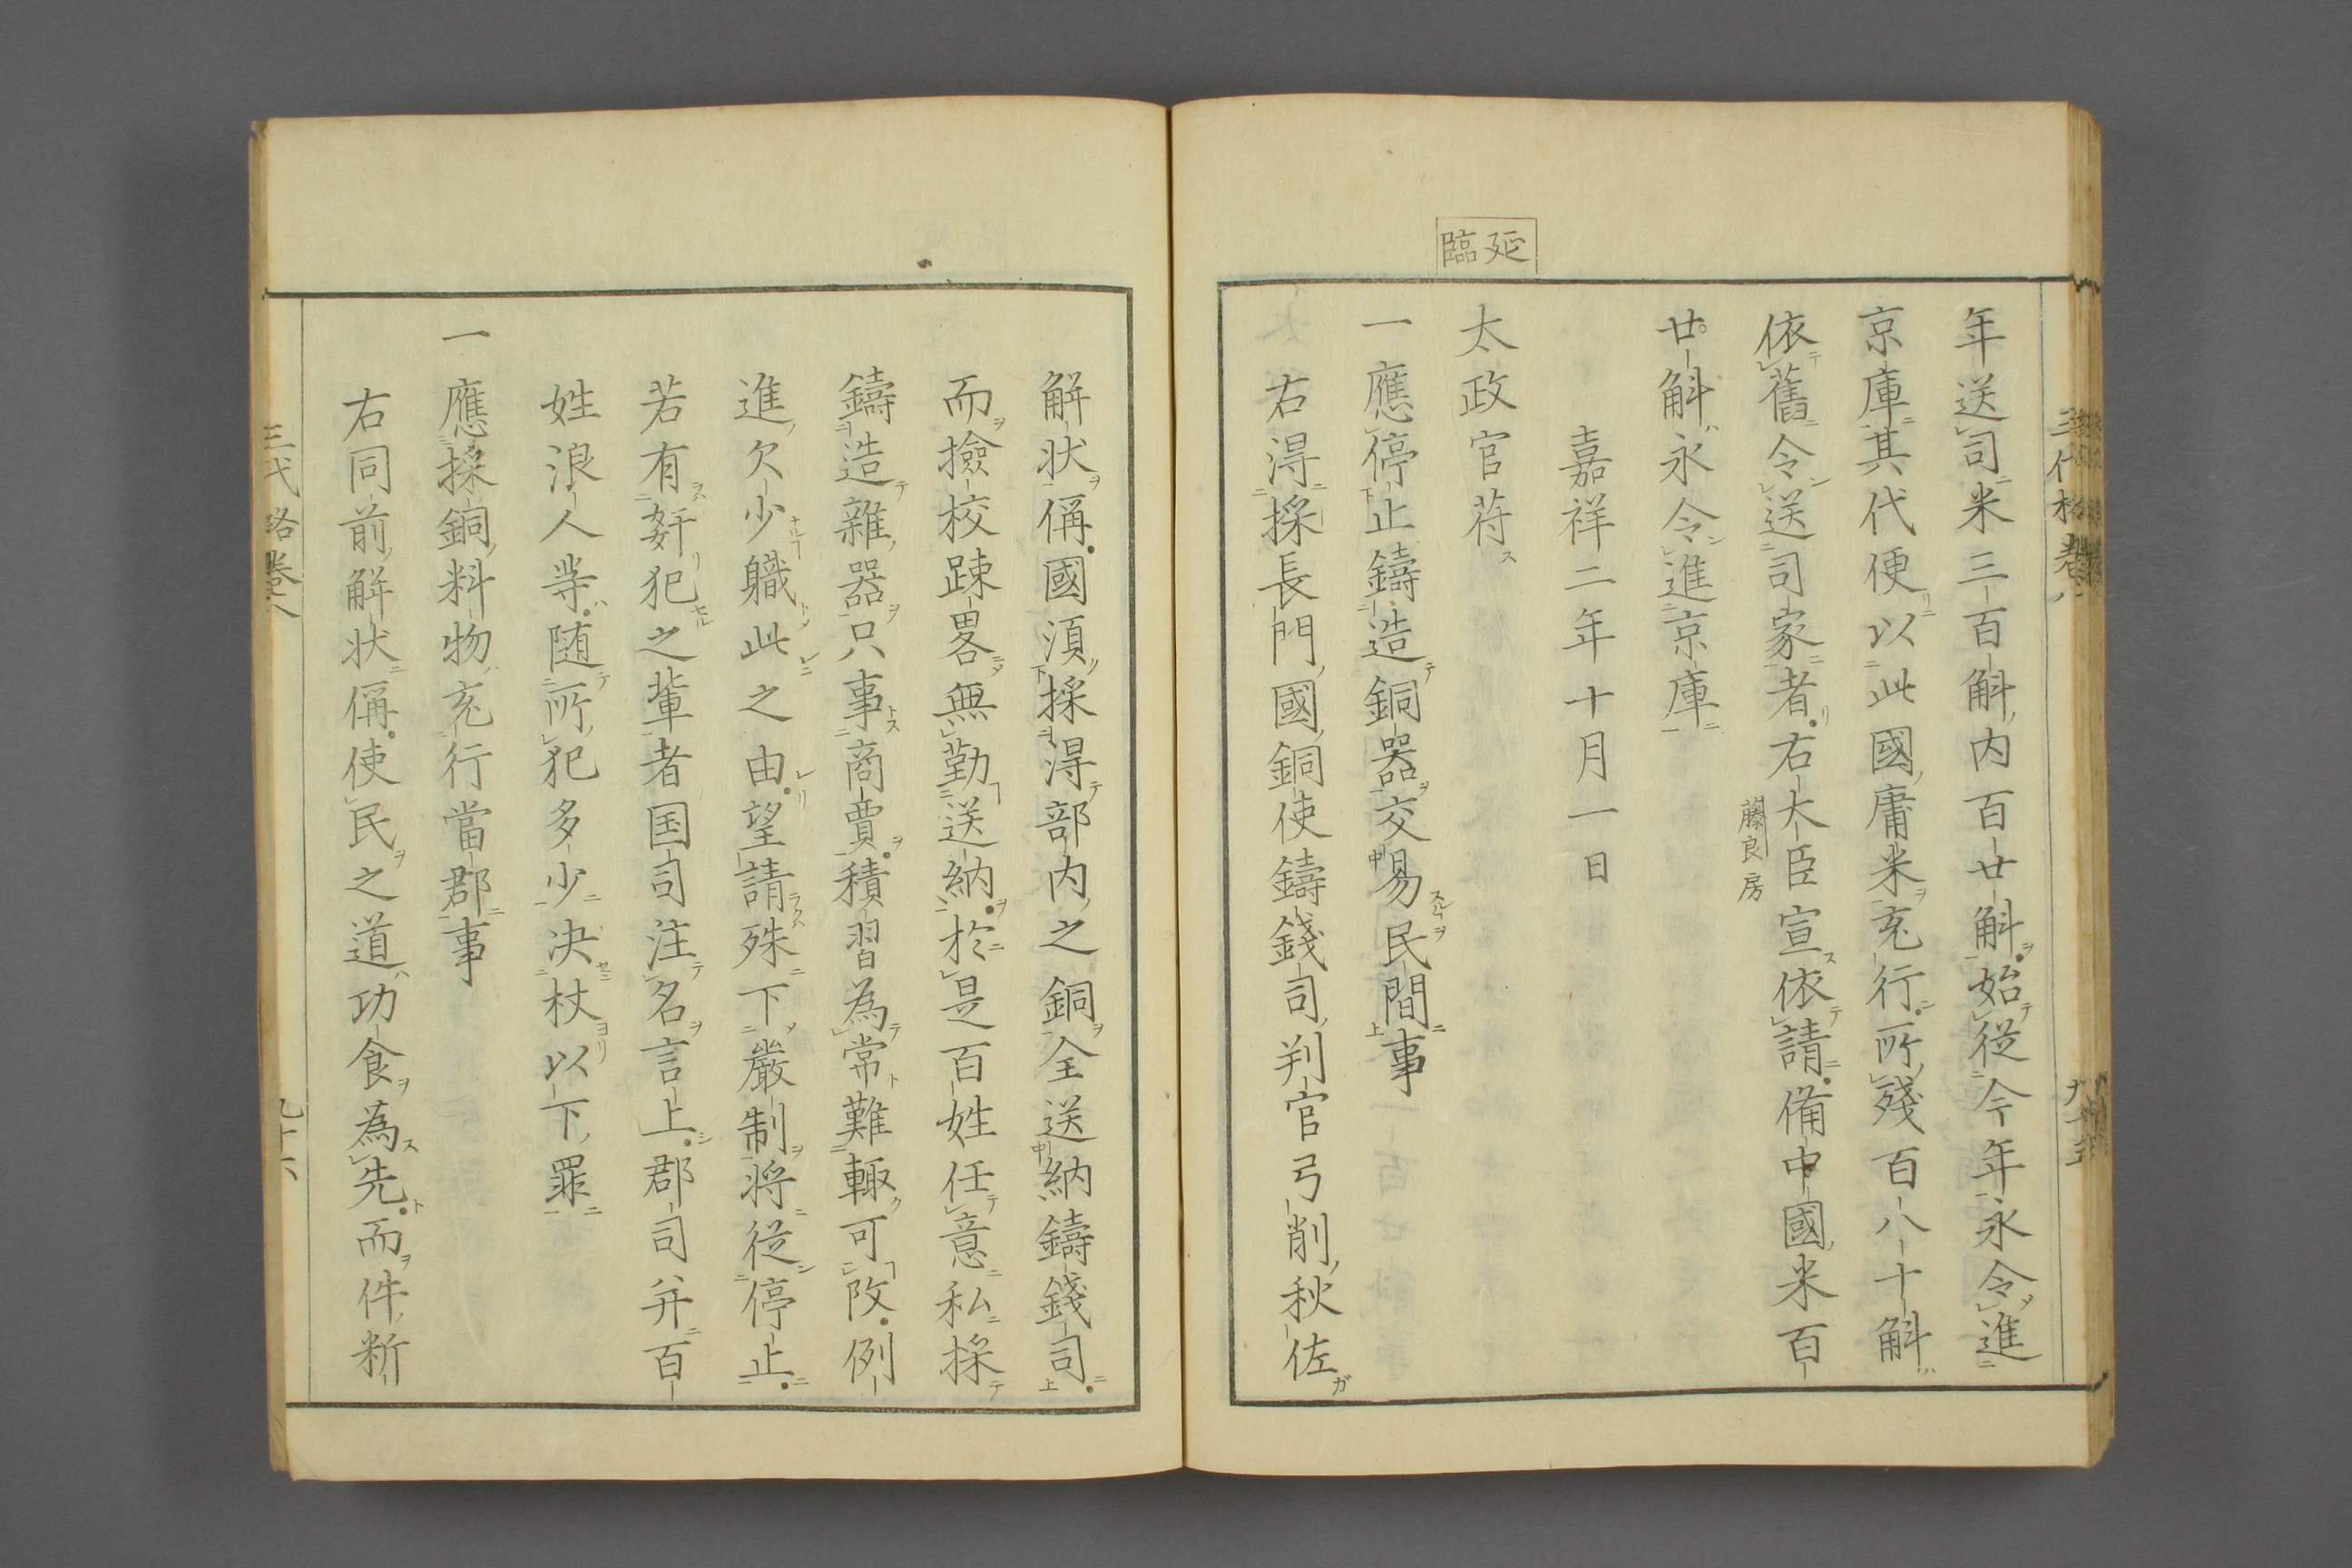 延臨
年送司米三百斛内百廿斛始従今年永令進
京庫其代便以此國庸米充行所殘百八十斛
依舊令送司家者右大臣宣依請備中國米百
藤良房
廿斛永令進京庫
嘉祥二年十月一日
太政官苻
一應停止鑄造銅器交易民間事
右淂採長門國銅使鑄錢司判官弓削秋佐
解状偁國湏採淂部内之銅全送納鑄錢司
而撿校踈畧無勤送納於是百姓任意私採
鑄造雜器只事商賈積習為常難輙可改例
進欠少職此之由望請殊下嚴制将従停止
若有姧犯之輩者国司注名言上郡司并百
姓浪人䒭随所犯多少决杖以下罪
一應採銅料物充行當郡事
右同前解状偁使民之道功食為先而件新
三代格巻八
九十六